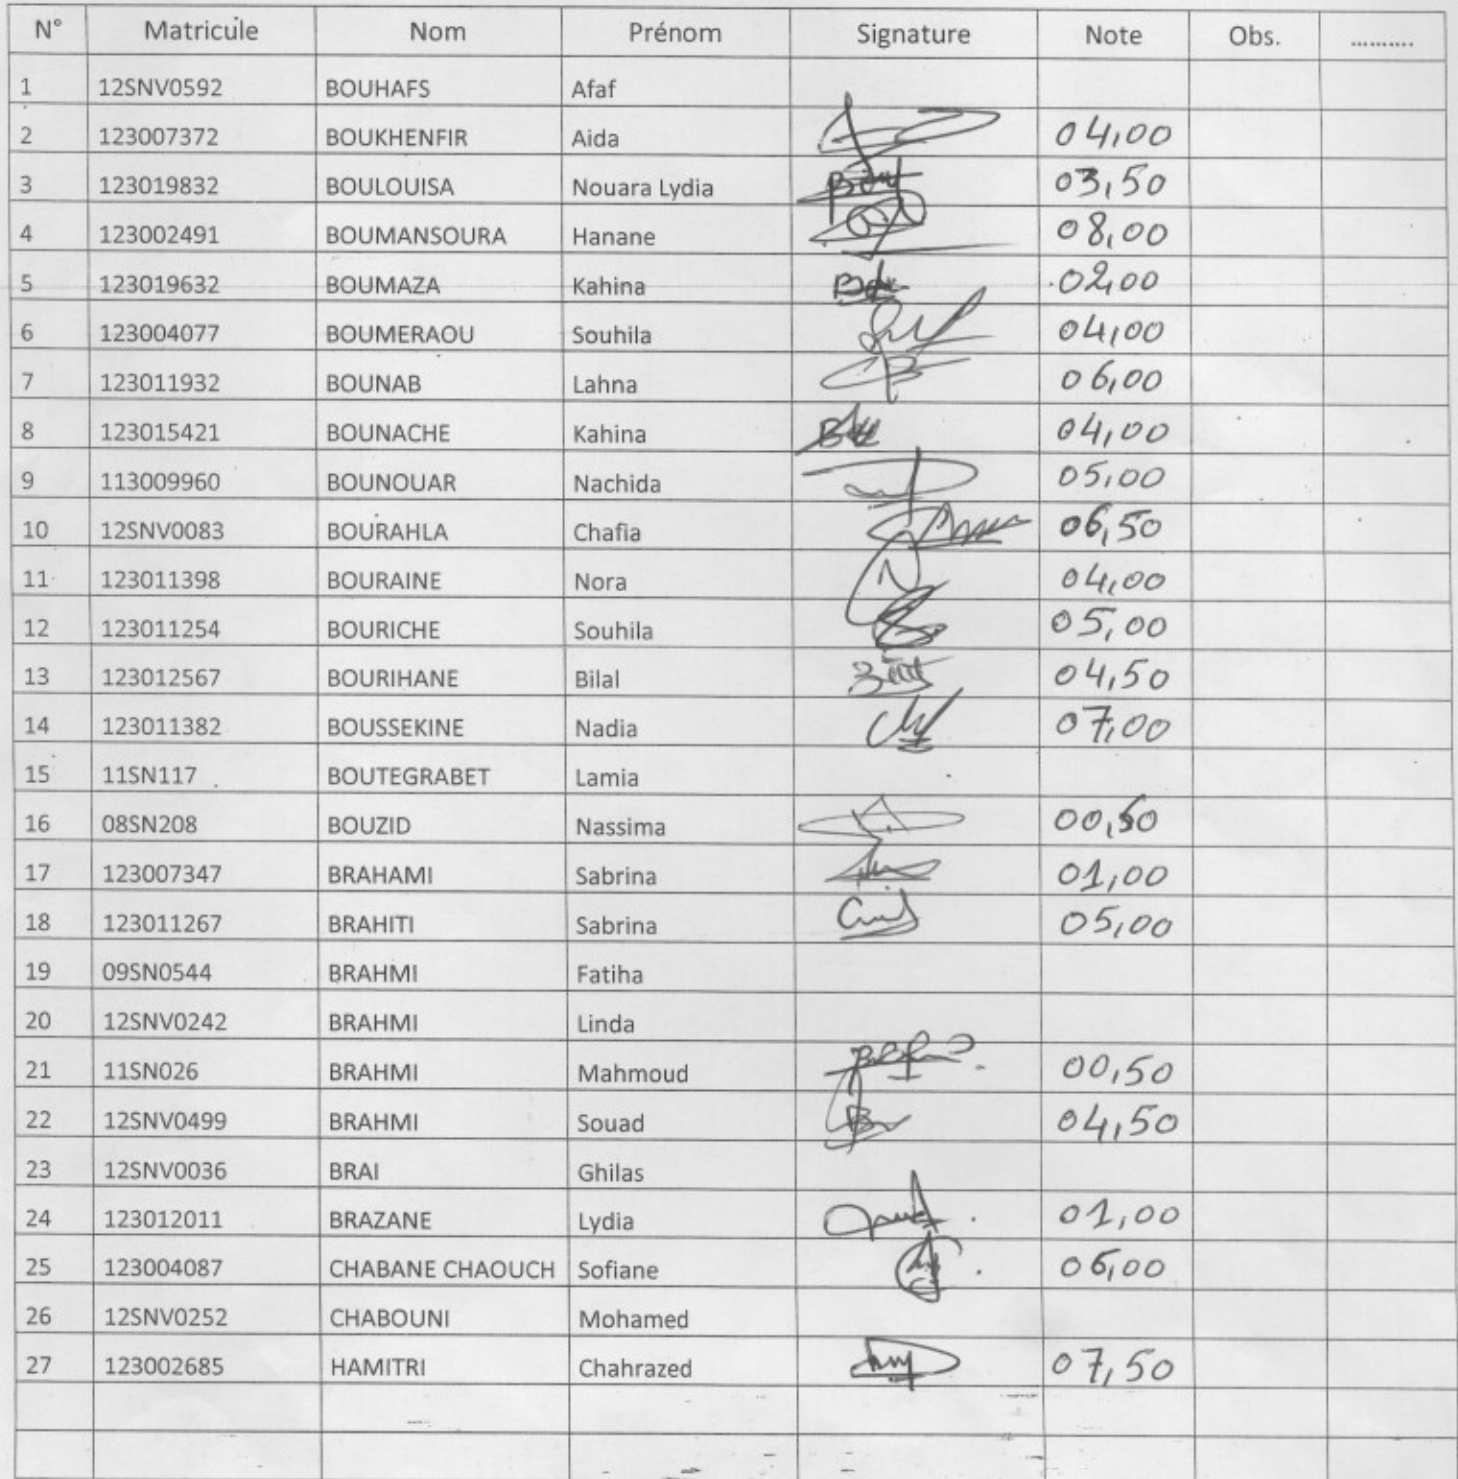 N° Matricule Nom Prénom Signature Note Obs. ..........
1 12SNV0592 BOUHAFS Afaf
2 123007372 BOUKHENFIR Aida 04,00
3 123019832 BOULOUISA Nouara Lydia 03,50
4 123002491 BOUMANSOURA Hanane 08,00
5 123019632 BOUMAZA Kahina 02,00
6 123004077 BOUMERAOU Souhila 04,00
7 123011932 BOUNAB Lahna 06,00
8 123015421 BOUNACHE Kahina 04,00
9 113009960 BOUNOUAR Nachida 05,00
10 12SNV0083 BOURAHLA Chafia 06,50
11 123011398 BOURAINE Nora 04,00
12 123011254 BOURICHE Souhila 05,00
13 123012567 BOURIHANE Bilal 04,50
14 123011382 BOUSSEKINE Nadia 07,00
15 11SN117 BOUTEGRABET Lamia
16 08SN208 BOUZID Nassima 00,50
17 123007347 BRAHAMI Sabrina 01,00
18 123011267 BRAHITI Sabrina 05,00
19 09SN0544 BRAHMI Fatiha
20 12SNV0242 BRAHMI Linda
21 11SN026 BRAHMI Mahmoud 00,50
22 12SNV0499 BRAHMI Souad 04,50
23 12SNV0036 BRAI Ghilas
24 123012011 BRAZANE Lydia 01,00
25 123004087 CHABANE CHAOUCH Sofiane 06,00
26 12SNV0252 CHABOUNI Mohamed
27 123002685 HAMITRI Chahrazed 07,50